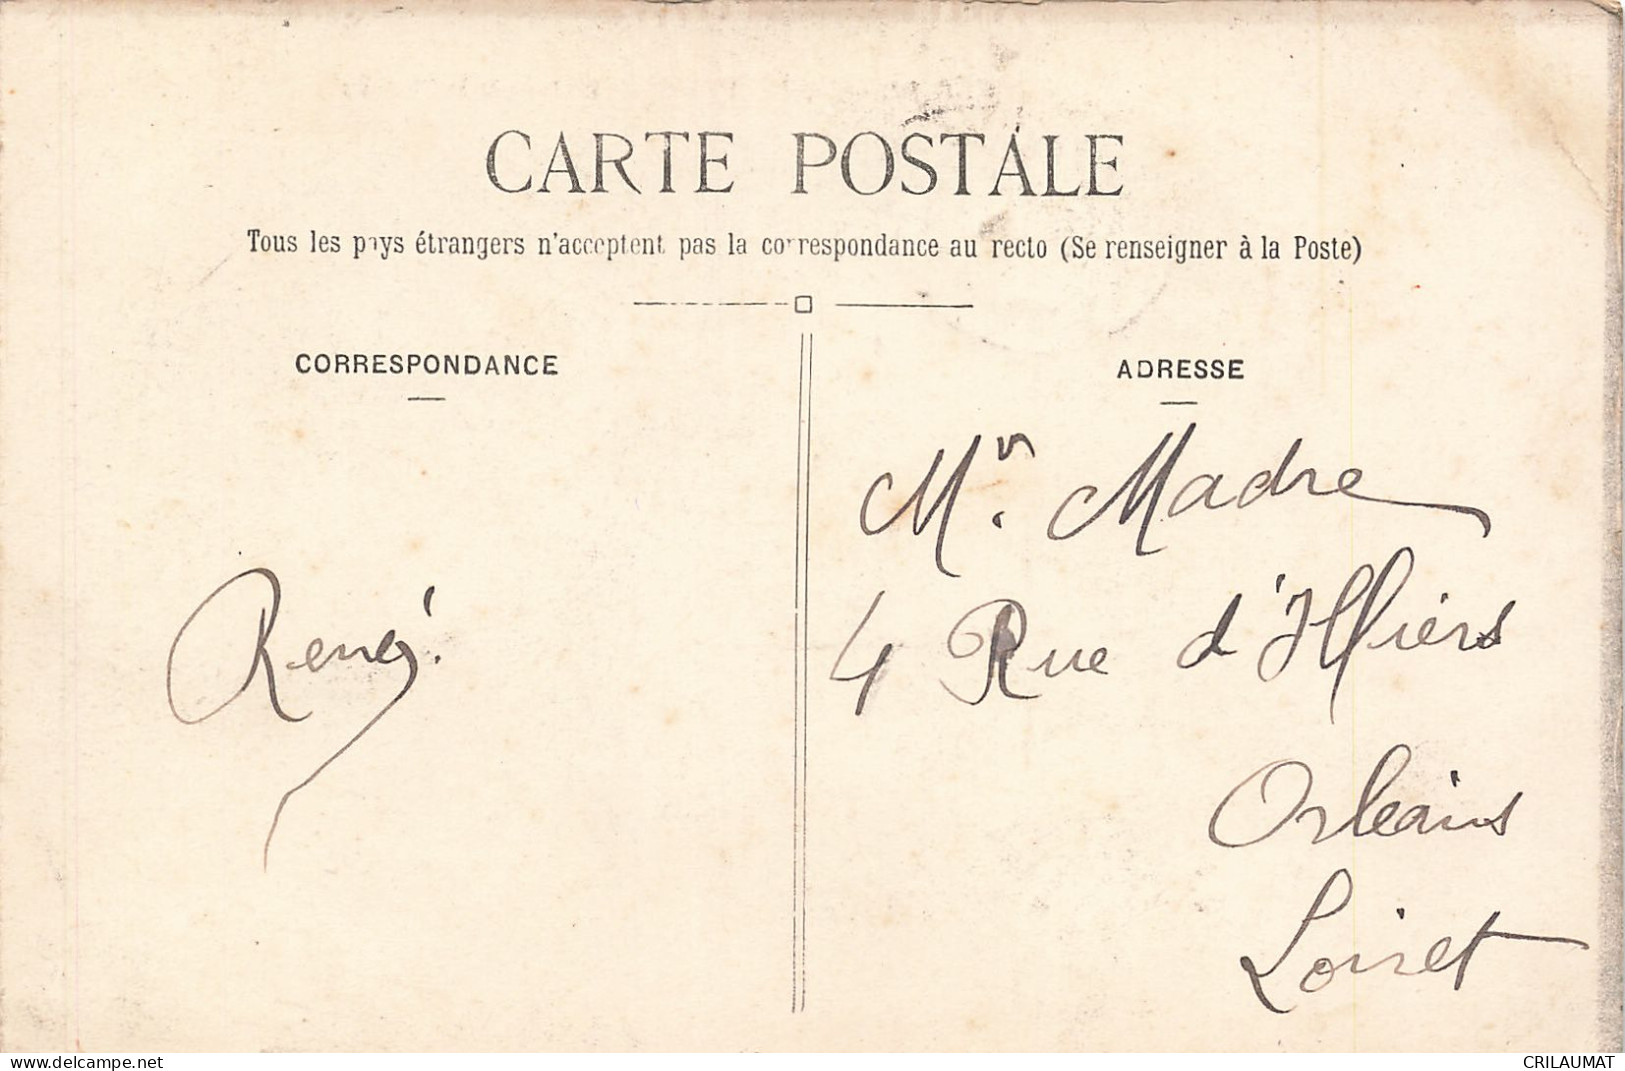 CARTE POSTALE
Tous les pays étrangers n'acceptent pas la correspondance au recto (Se renseigner à la Poste)
CORRESPONDANCE
ADRESSE
Mr. Madre
4 Rue d'Illiers
Orléans
Loiret
René.
www.delcampe.net
CRILAUMAT